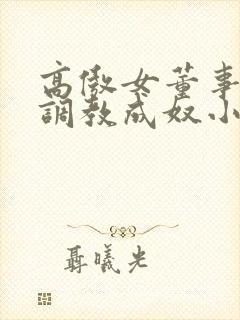 高傲女董事
調教成奴小
聶曦光